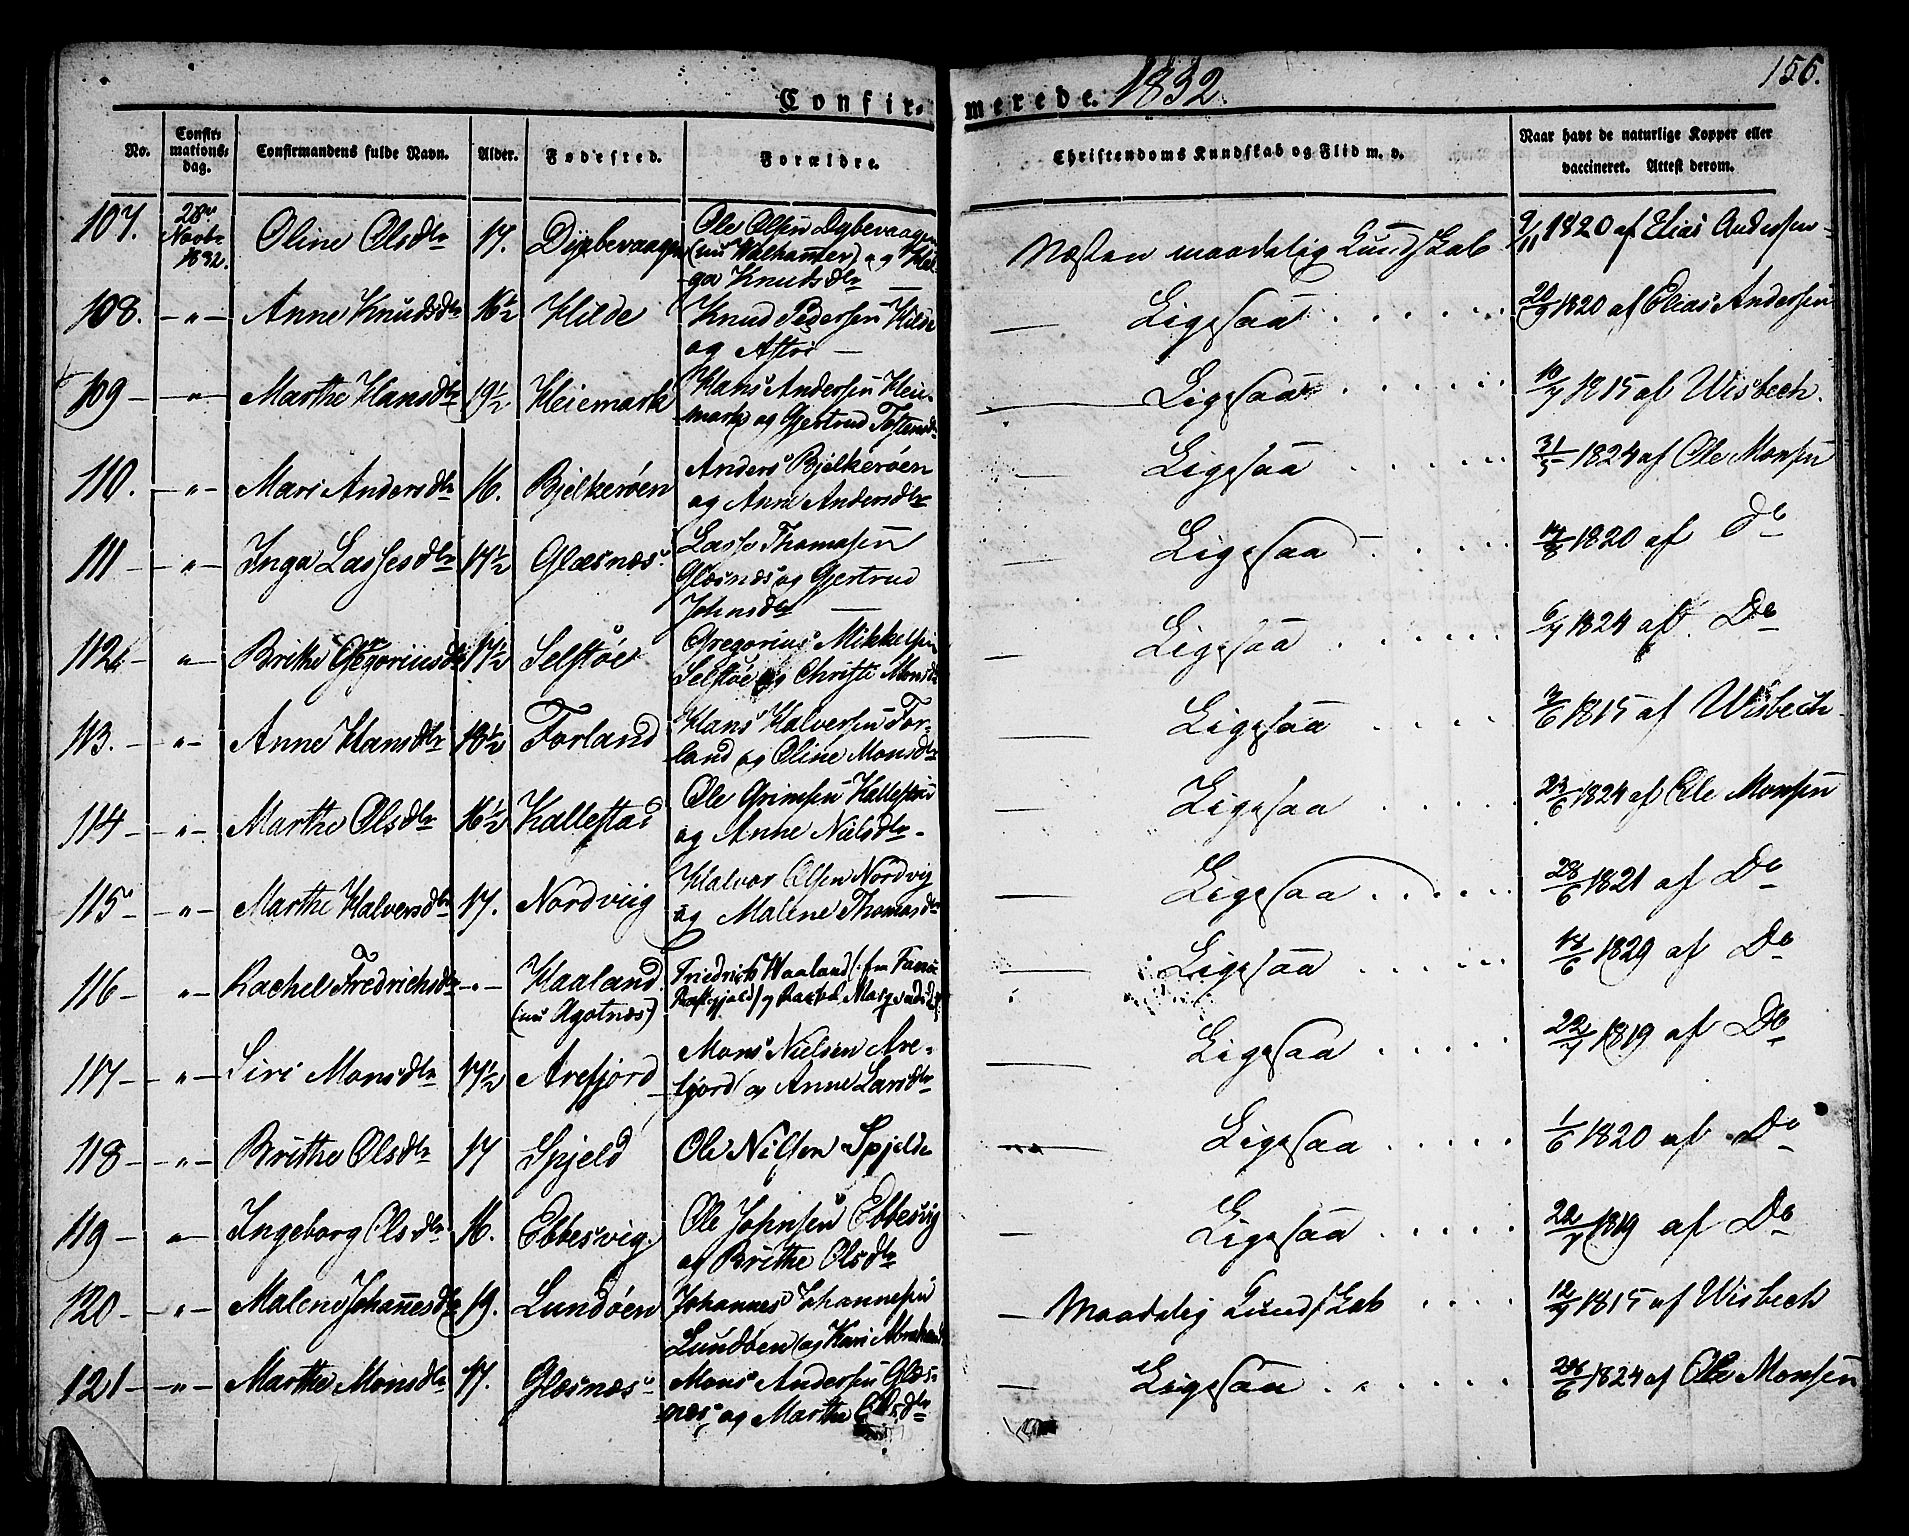 Confirmerede. 1832. 156.
No. Confirmationsdag. Confirmandens fulde Navn. Alder. Fødested. Forældre. Christendoms Kundskab og Flid m. v. Naar havt de naturlige Kopper eller vaccineret. Attest derom.
107. 28de Novbr 1832. Oline Olsdtr 17. Dybevaagen Ole Olsen Dybevaagen (nu Walhammer) og Helga Knudsdtr — Næsten maadelig Kundskab 9/11 1820 af Elias Andersen
108. — " — Anne Knudsdtr 16½ Hilde Knud Pedersen Hilde og Astri — — Ligesaa . . . . . 20/9 1820 af Elias Andersen
109 — " — Marthe Hansdtr 19½ Heiemark Hans Andersen Heiemark og Gjertrud Tostensdtr — Ligesaa . . . . . 10/7 1815 af Wisbech.
110. — " — Mari Andersdtr 16. Bjelkerøen Anders Bjelkerøen og Anne Andersdtr — Ligesaa . . . . . 31/5 1824 af Ole Monsen
111 — " — Inga Lassesdtr 17½ Glæsnæs Lasse Thomasen Glæsnæs og Gjertrud Johnsdtr — — Ligesaa . . . . 14/8 1820 af Do
112 — " — Brithe Gregoriusdtr 17½ Selstøe Gregorius Mikkelsen Selstøe og Christi Monsdtr — Ligesaa . . . . . 6/7 1824 af Do
113. — " — Anne Hansdtr 18½ Forland Hans Halversen Forland og Oline Monsdtr — Ligesaa . . . . 3/6 1815 af Wisbech
114 — " — Marthe Olsdtr 16½ Hallestad Ole Grimsen Hallestad og Anne Nielsdtr — Ligesaa . . . . 23/6 1824 af Ole Monsen
115 — " — Marthe Halversdtr 17. Nordviig Halvor Olsen Nordvig og Malene Thomasdtr — Ligesaa . . . . . 28/6 1821 af Do
116 — " — Rachel Fredrichsdtr — " — Haaland (nu Agotnæs) Friedrich Haaland — Ligesaa . . . . . 18/6 1829 af Do
117 — " — Siri Monsdtr 17½ Arefjord Mons Nielsen Arefjord og Anne Larsdtr — Ligesaa . . . . . 22/7 1819 af Do
118 — " — Brithe Olsdtr 17 Spjeld Ole Nilsen Spjeld — Ligesaa . . . . 1/6 1820 af Do
119 — " — Ingeborg Olsdtr 16. Ebbesvig. Ole Johnsen Ebbesvig og Brithe Olsdtr — Ligesaa . . . . . 22/7 1819 af Do
120 — " — Malene Johannesdtr 19. Lundøen Johannes Johannesen Lundøen og Kari Abrahamsd — Maadelig Kundskab . . . . 12/9 1815 af Wisbech
121 — " — Marthe Monsdtr 17. Glæsnæs Mons Andersen Glæsnæs og Marthe Olsdtr — Ligesaa . . . . . 24/6 1824 af Ole Monsen